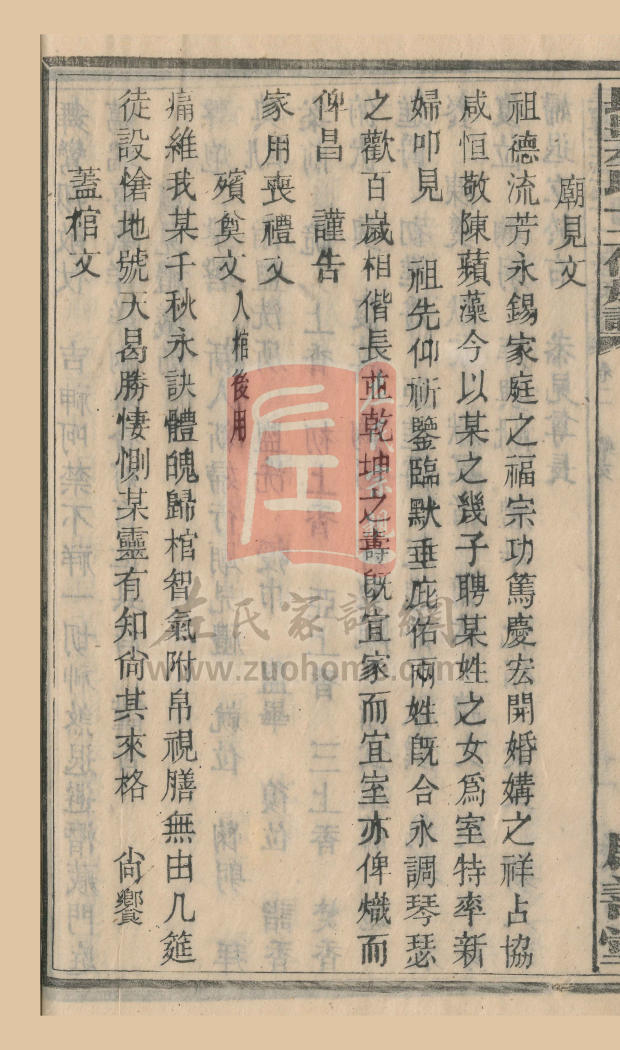 廟見文
祖德流芳永錫家庭之福宗功篤慶宏開婚媾之祥占協
咸恒敬陳蘋藻今以某之幾子聘某姓之女爲室特率新
婦叩見 祖先仰祈鑒臨默垂庇佑兩姓旣合永調琴瑟
之歡百歲相偕長並乾坤之壽旣宜家而宜室亦俾熾而
俾昌 謹告
家用喪禮文
殯奠文入棺後用
痛維我某千秋永訣體魄歸棺智氣附帛視膳無由几筵
徒設愴地號天曷勝悽惻某靈有知尙其來格 尙饗
蓋棺文
左氏家譜網
www.zuohome.com